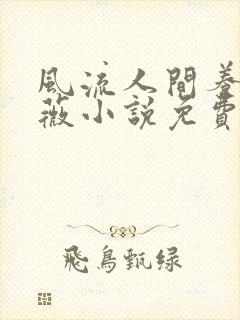 風流人間養
薇小說免費
飛鳥甄绿